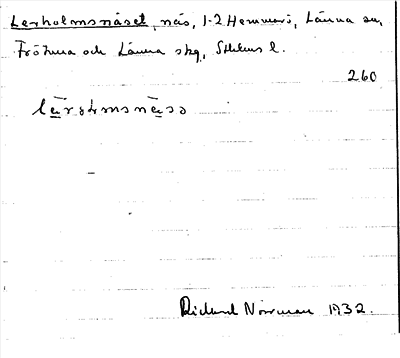 Lerholmsnäset, näs, 1-2 Hemmarö, Länna sn,
Frötuna och Länna skg, Sthlms l.
260
lǟrɷmsnǟsə
Rickard Norrman 1932.